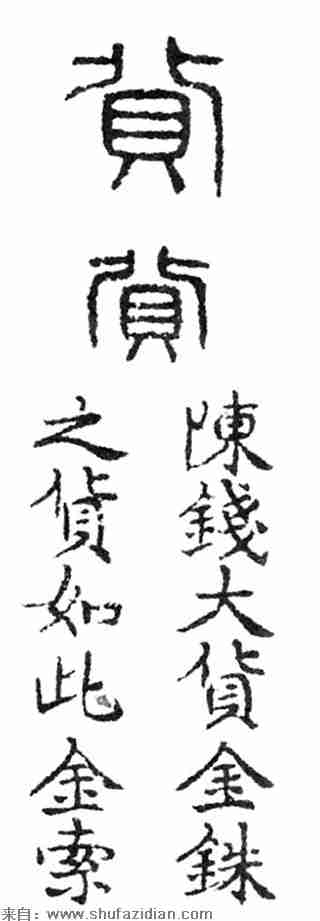 貨
貨
陳錢大貨金銖
之貨如此金索
来自：www.shufazidian.com